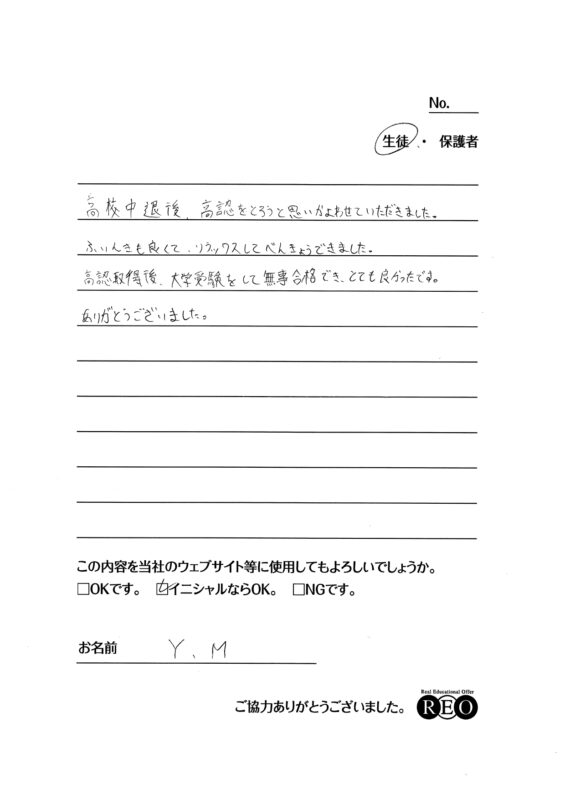 No.
生徒 ・ 保護者
高校中退後、高認をとろうと思いかよわせていただきました。
ふいんきも良くて、リラックスしてべんきょうできました。
高認取得後、大学受験をして無事合格でき、とても良かったです。
ありがとうございました。
この内容を当社のウェブサイト等に使用してもよろしいでしょうか。
□OKです。 ☑イニシャルならOK。 □NGです。
お名前 Y、M
Real Educational Offer
ご協力ありがとうございました。 REO